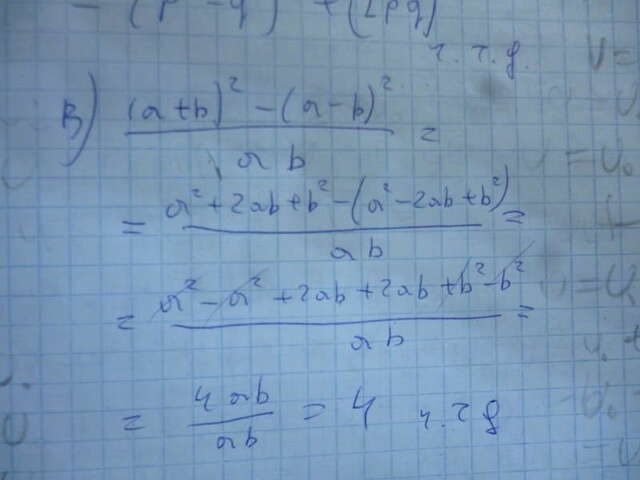 - (p - q) + (2pq)
ч. т. д.
в) (a+b)² - (a-b)² / ab =
= a² + 2ab + b² - (a² - 2ab + b²) / ab =
= a² - a² + 2ab + 2ab + b² - b² / ab =
= 4ab / ab = 4 ч. т. д